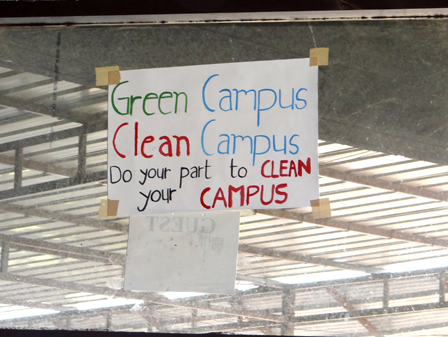 Green Campus
Clean Campus
Do your part to CLEAN
your CAMPUS
GUEST